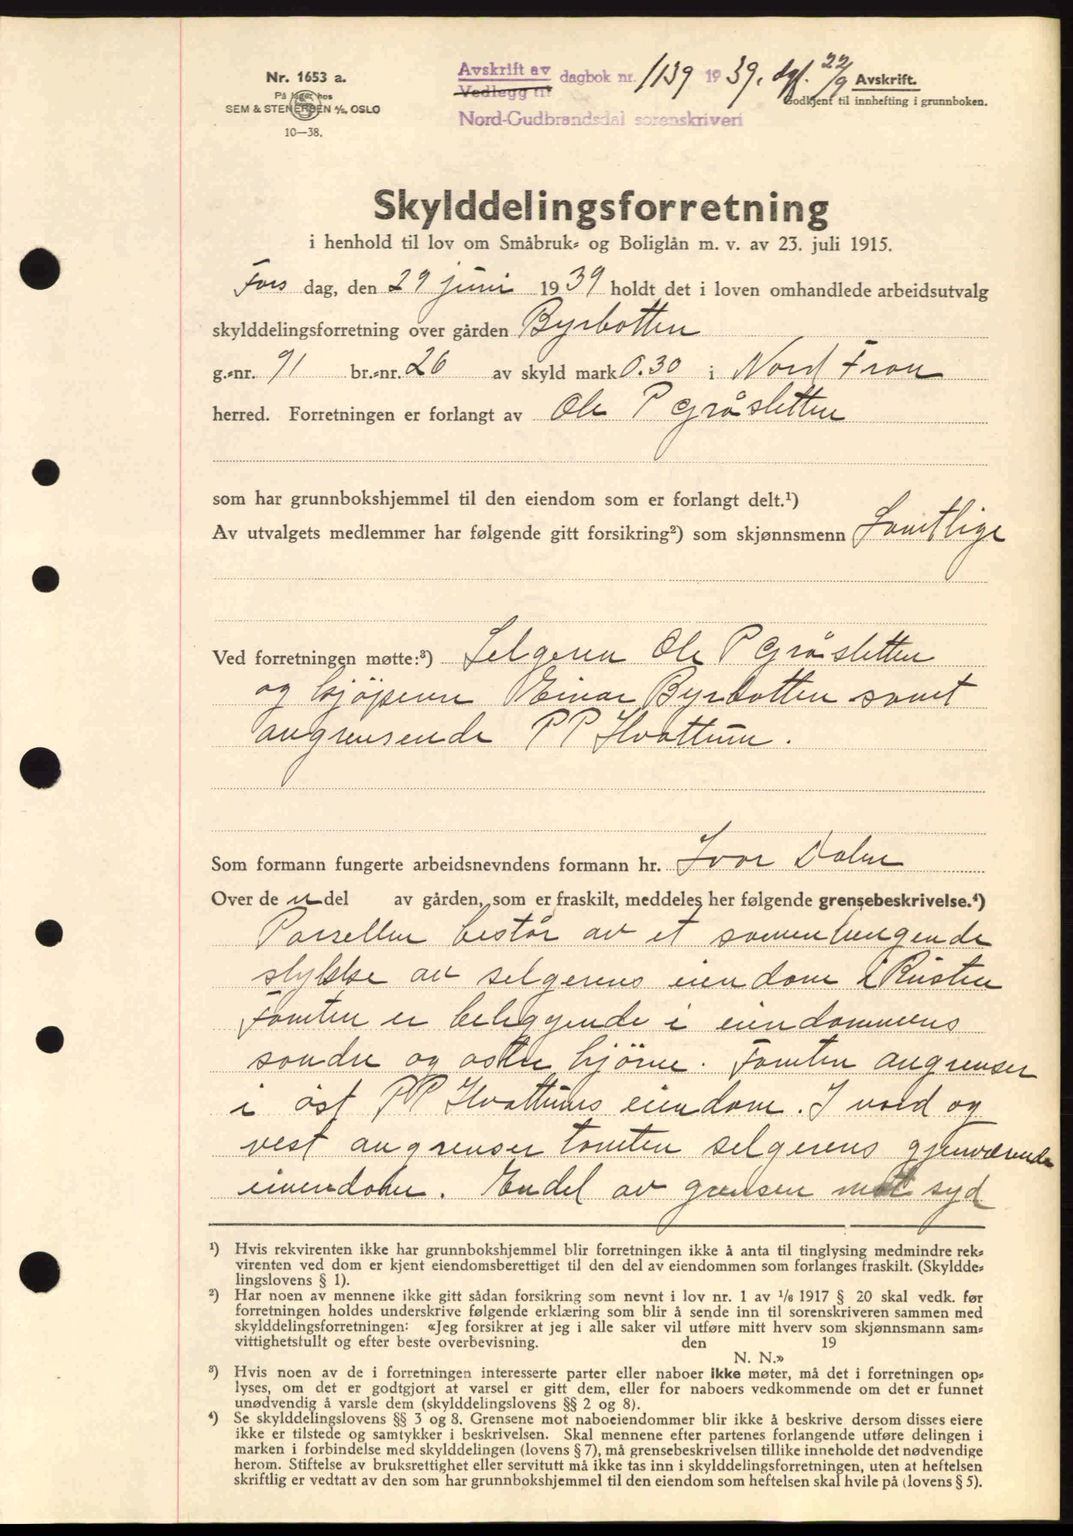 Nr. 1653 a.
På lager hos
SEM & STENERSEN A/S, OSLO
10—38.
Avskrift av
Vedlegg til
dagbok nr. 1139 1939. dgf. 22/9
Nord-Gudbrandsdal sorenskriveri
Avskrift.
Godkjent til innhefting i grunnboken.
Skylddelingsforretning
i henhold til lov om Småbruk- og Boliglån m. v. av 23. juli 1915.
Fors dag, den 29 juni 1939 holdt det i loven omhandlede arbeidsutvalg
skylddelingsforretning over gården Byrbotten
g.-nr. 91 br.-nr. 26 av skyld mark 0.30 i Nord Fron
herred. Forretningen er forlangt av Ole P Gråsletten
som har grunnbokshjemmel til den eiendom som er forlangt delt.¹)
Av utvalgets medlemmer har følgende gitt forsikring²) som skjønnsmenn Samtlige
Ved forretningen møtte:³) Selgeren Ole P Gråsletten
og kjöperen Einar Byrbotten samt
angrensende P P Hvattum.
Som formann fungerte arbeidsnevndens formann hr. Ivar Dalen
Over de n del av gården, som er fraskilt, meddeles her følgende grensebeskrivelse.⁴)
Parsellen består av et sammenhengende
stykke av selgerens eiendom i Rusten
Tomten er beliggende i eiendommens
sondre og ostre hjörne. Tomten angrenser
i öst P P Hvattums eiendom. I nord og
vest angrenser tomten selgerens gjenværende
eiendom. Endel av grensen mot syd
¹) Hvis rekvirenten ikke har grunnbokshjemmel blir forretningen ikke å anta til tinglysing medmindre rek-
virenten ved dom er kjent eiendomsberettiget til den del av eiendommen som forlanges fraskilt. (Skyldde-
lingslovens § 1).
²) Har noen av mennene ikke gitt sådan forsikring som nevnt i lov nr. 1 av 1/6 1917 § 20 skal vedk. før
forretningen holdes underskrive følgende erklæring som blir å sende inn til sorenskriveren sammen med
skylddelingsforretningen: «Jeg forsikrer at jeg i alle saker vil utføre mitt hverv som skjønnsmann sam-
vittighetsfullt og efter beste overbevisning. den 19
N. N.»
³) Hvis noen av de i forretningen interesserte parter eller naboer ikke møter, må det i forretningen op-
lyses, om det er godtgjort at varsel er gitt dem, eller for naboers vedkommende om det er funnet
unødvendig å varsle dem (skylddelingslovens §§ 2 og 8).
⁴) Se skylddelingslovens §§ 3 og 8. Grensene mot naboeiendommer blir ikke å beskrive dersom disses eiere
ikke er tilstede og samtykker i beskrivelsen. Skal mennene efter partenes forlangende utføre delingen i
marken i forbindelse med skylddelingen (lovens § 7), må grensebeskrivelsen tillike inneholde det nødvendige
herom. Stiftelse av bruksrettighet eller servitutt må ikke tas inn i skylddelingsforretningen, uten at heftelsen
skriftlig er vedtatt av den som har grunnbokshjemmel til den eiendom som heftelsen skal hvile på (lovens § 5).